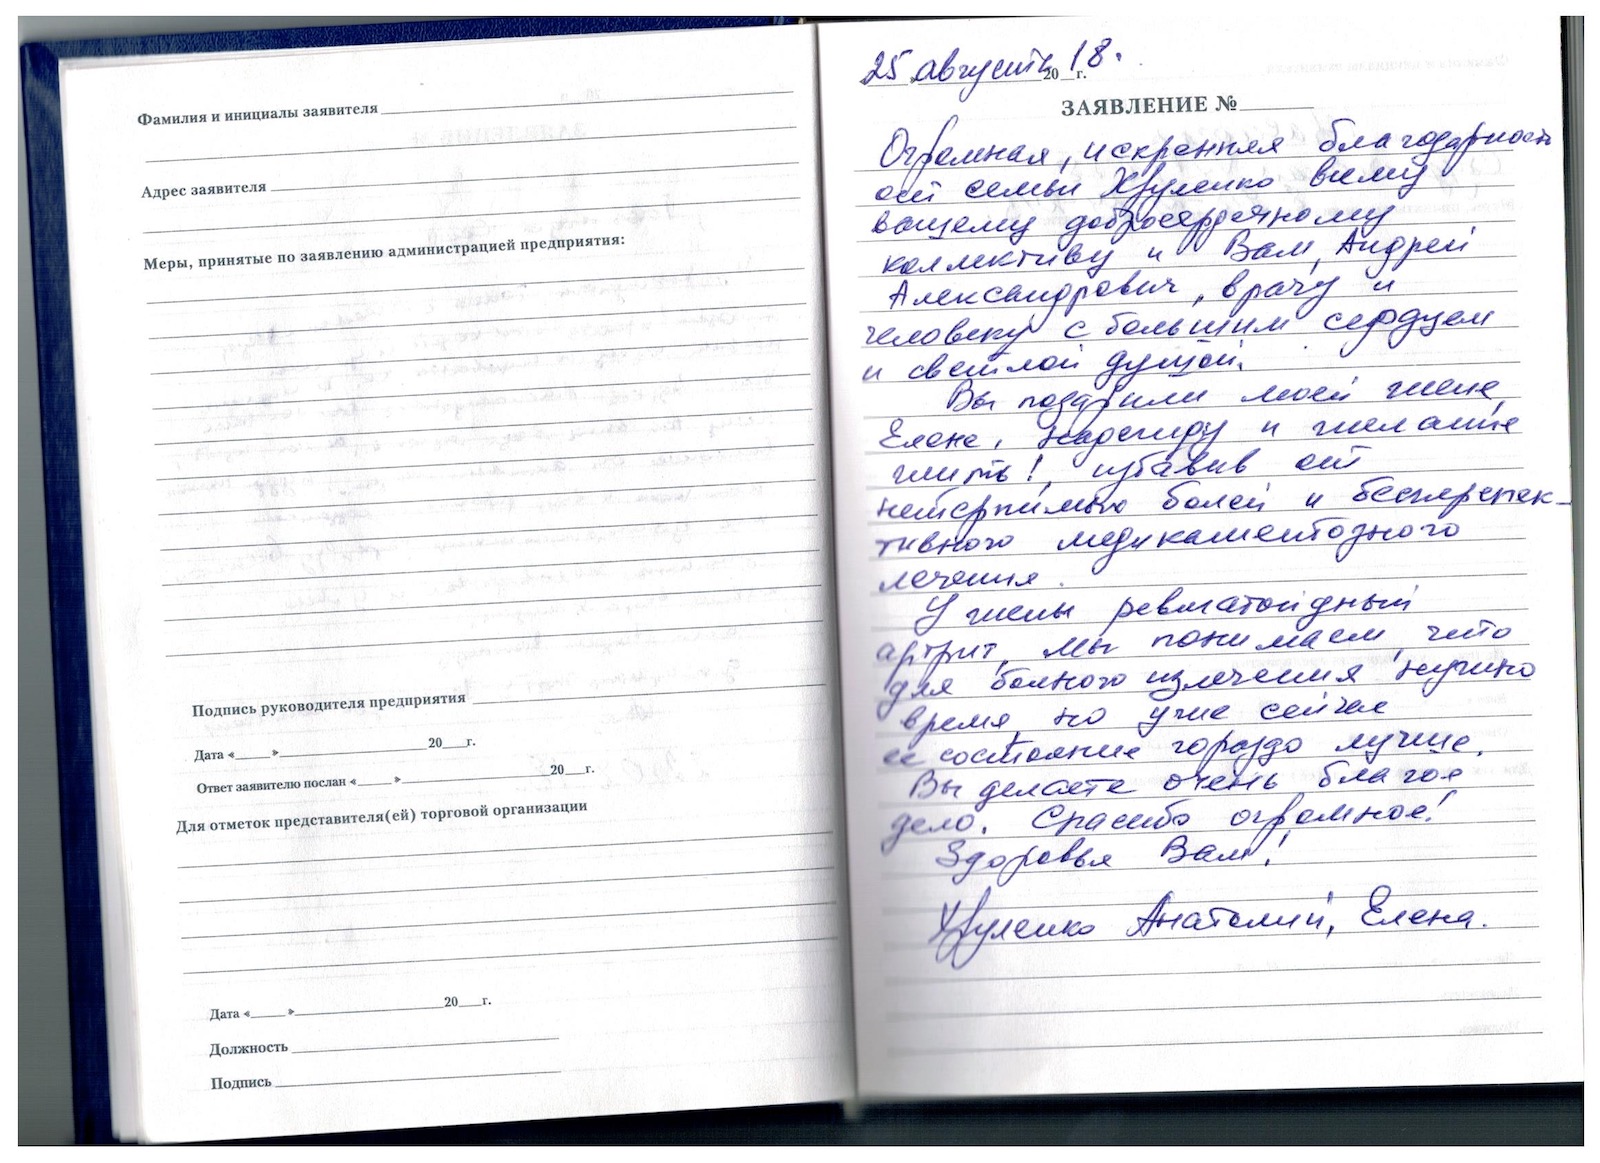 Фамилия и инициалы заявителя
Адрес заявителя
Меры, принятые по заявлению администрацией предприятия:
Подпись руководителя предприятия
Дата «_____» 20___г.
Ответ заявителю послан «_____» 20___г.
Для отметок представителя(ей) торговой организации
Дата «_____» 20___г.
Должность
Подпись
25 августа 2018 г.
ЗАЯВЛЕНИЕ №
Огромная, искренняя благодарность
от семьи Хруленко всему
вашему добросердечному
коллективу и Вам, Андрей
Александрович, врачу и
человеку с большим сердцем
и светлой душой.
Вы подарили моей жене,
Елене, надежду и желание
жить!, избавив от
нетерпимых болей и бесперспек-
тивного медикаментозного
лечения.
У жены ревматоидный
артрит, мы понимаем, что
для полного излечения нужно
время, но уже сейчас
ее состояние гораздо лучше.
Вы делаете очень благое
дело. Спасибо огромное!
Здоровья Вам!
Хруленко Анатолий, Елена.